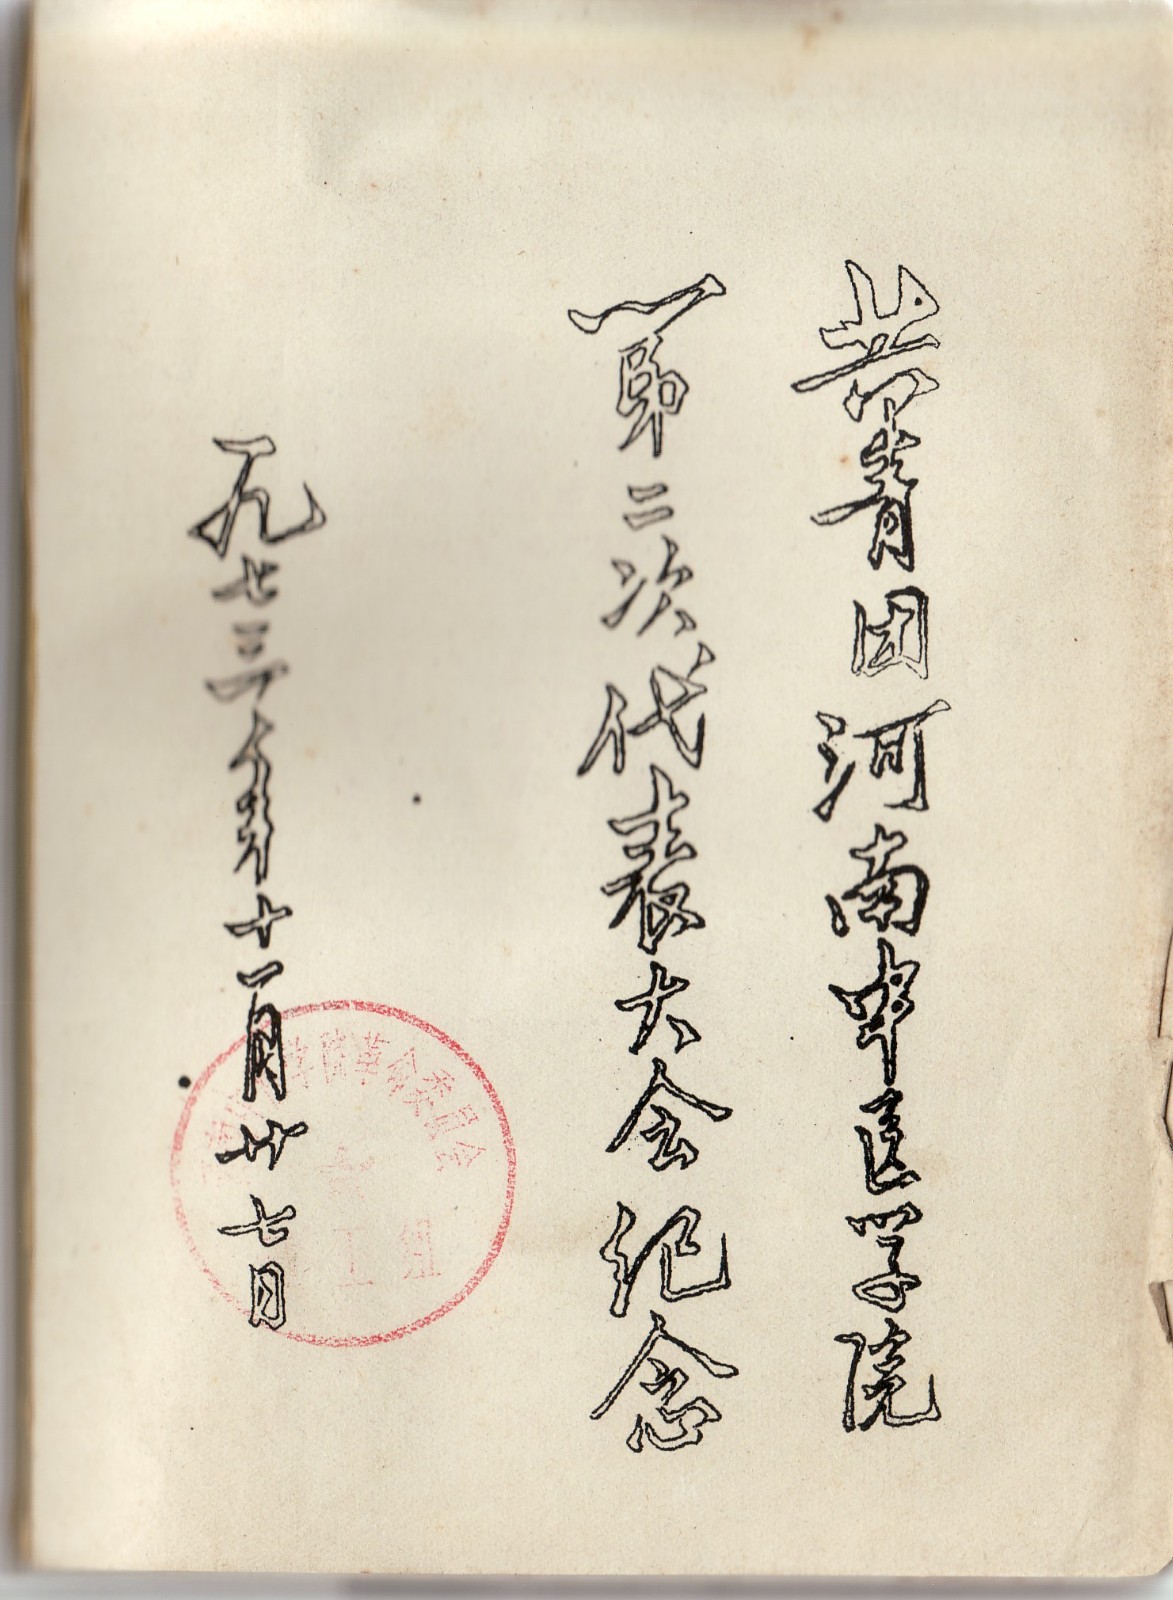 共青团河南中医学院
第二次代表大会纪念
一九七三年十一月廿七日
革命委员会
工